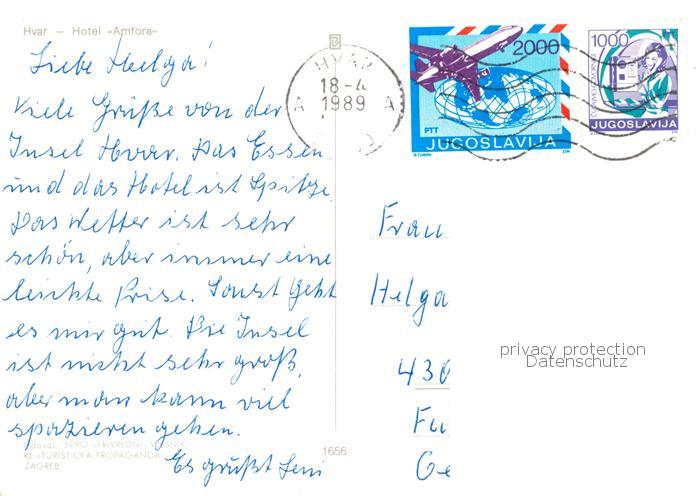 Hvar – Hotel »Amfora«
Liebe Helga!
Viele Grüße von der
Insel Hvar. Das Essen
und das Hotel ist Spitze
Das Wetter ist sehr
schön, aber immer eine
leichte Prise. Sonst geht
es mir gut. Die Insel
ist nicht sehr groß,
aber man kann viel
spazieren gehen.
Es grüßt
HVAR
18-4
1989
A A
2000
PTT
JUGOSLAVIJA
1000
JUGOSLAVIJA
Frau
Helga
430
privacy protection
Datenschutz
NIRO »PRIVREDNI VJESNIK«
RJ »TURISTICKA PROPAGANDA«
ZAGREB
1656